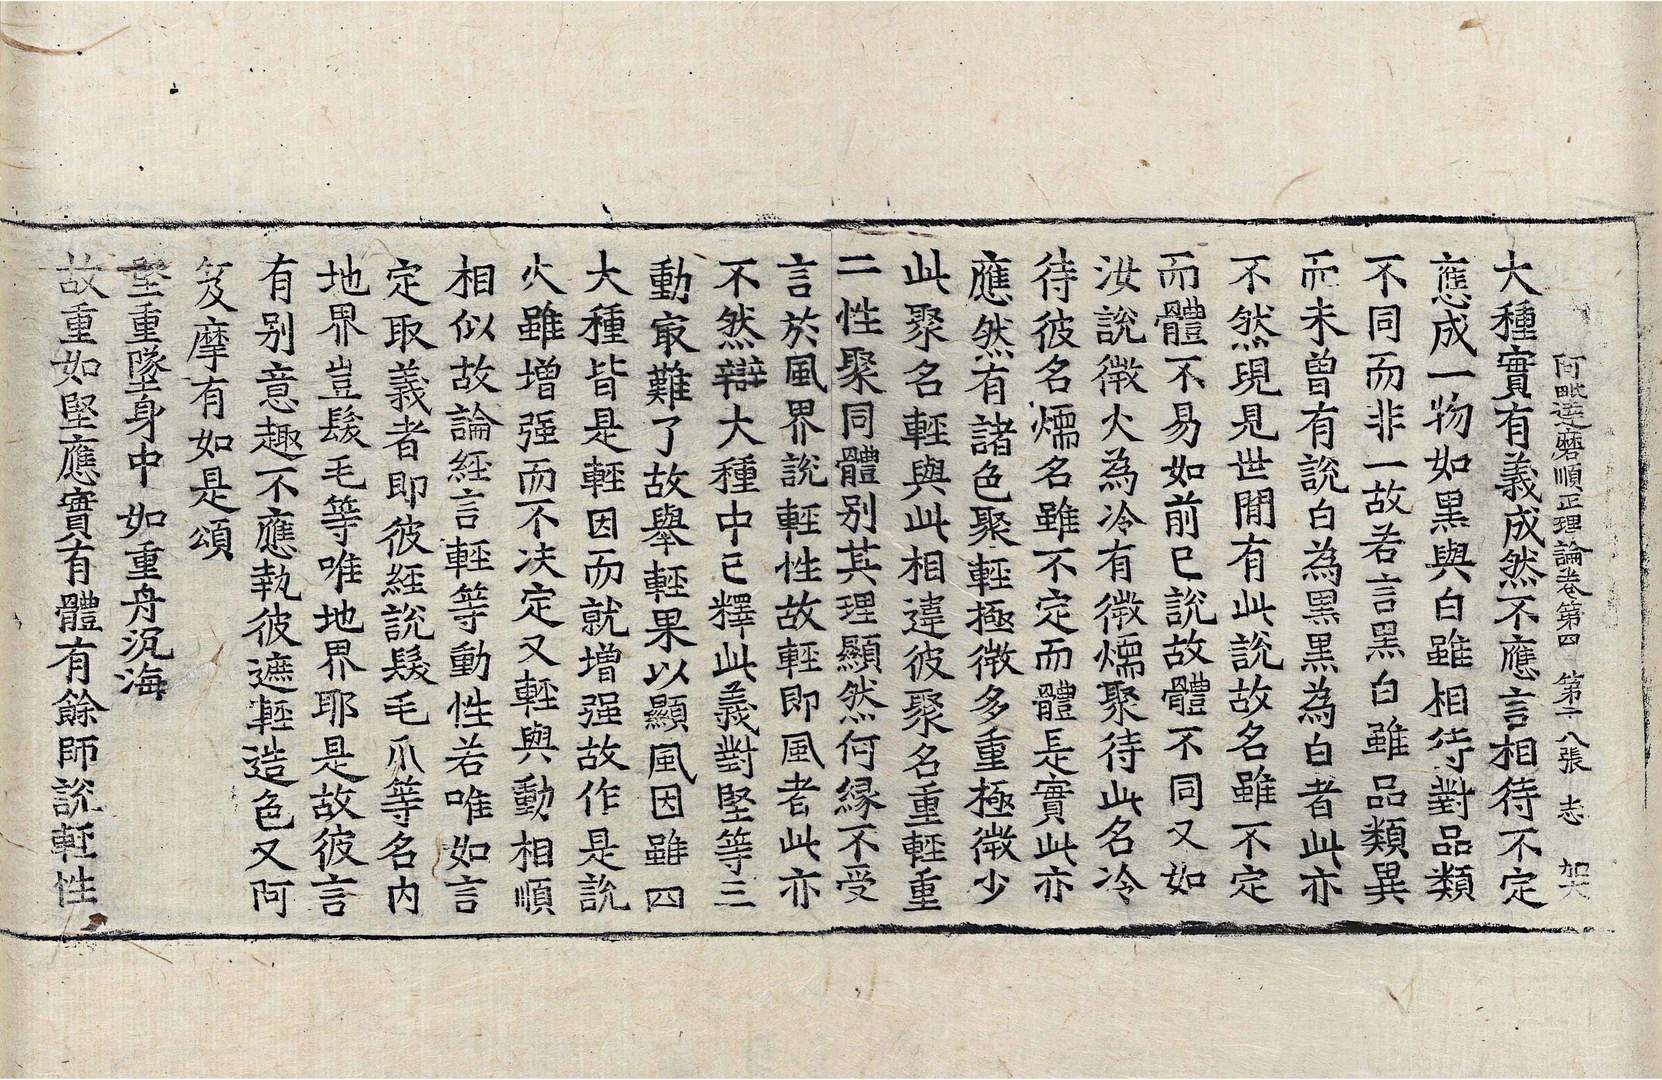 阿毗達磨順正理論卷第四　第十八張　志　加大
大種實有義成然不應言相待不定
應成一物如黑與白雖相待對品類
不同而非一故若言黑白雖品類異
而未曾有說白為黑黑為白者此亦
不然現見世間有此說故名雖不定
而體不易如前已說故體不同又如
汝說微火為冷有微煗聚待此名冷
待彼名煗名雖不定而體是實此亦
應然有諸色聚輕極微多重極微少
此聚名輕與此相違彼聚名重輕重
二性聚同體別其理顯然何緣不受
言於風界說輕性故輕即風者此亦
不然辯大種中已釋此義對堅等三
動㝡難了故舉輕果以顯風因雖四
大種皆是輕因而就增强故作是說
火雖增强而不决定又輕與動相順
相似故論經言輕等動性若唯如言
定取義者即彼經說髮毛爪等名內
地界豈髮毛等唯地界耶是故彼言
有別意趣不應執彼遮輕造色又阿
笈摩有如是頌
堅重墜身中如重舟沉海
故重如堅應實有體有餘師說輕性